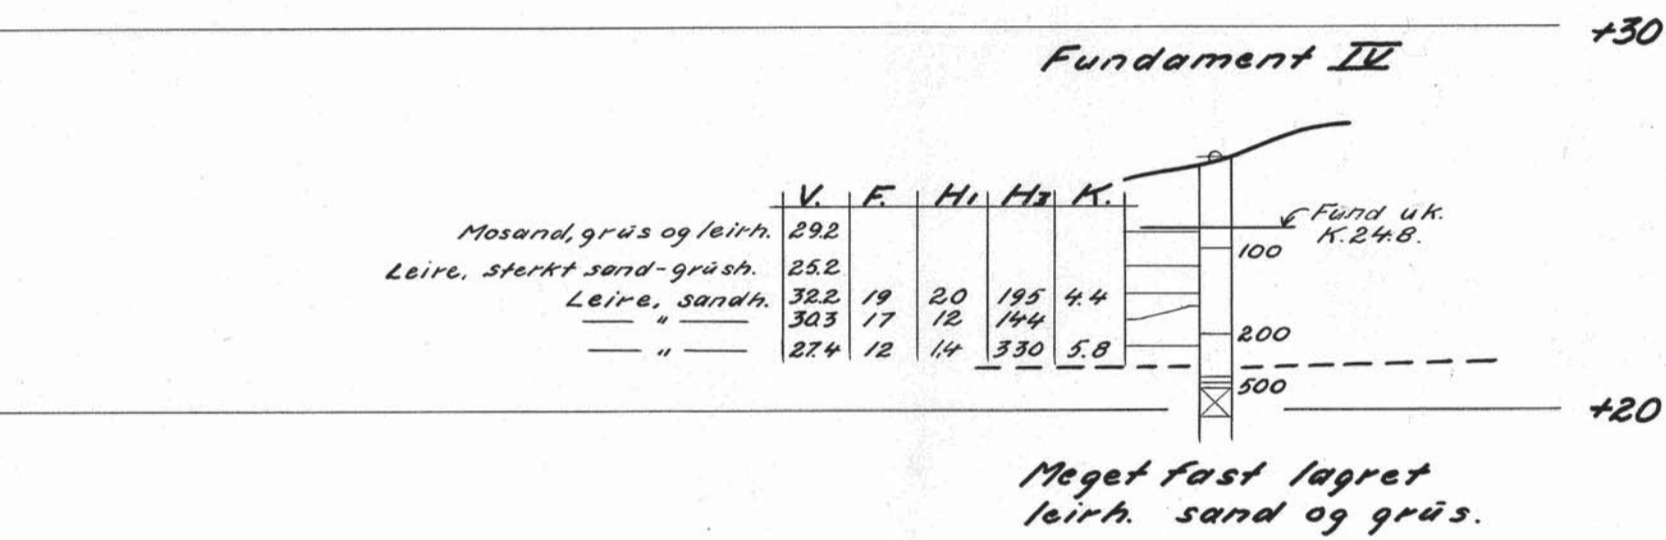 +30
Fundament IV
V. F. H1 H3 K.
Mosand, grus og leirh. 29.2
Leire, sterkt sand-grush. 25.2
Leire, sandh. 32.2 19 20 195 4.4
— " — 30.3 17 12 144
— " — 27.4 12 1.4 330 5.8
Fund uk.
K.24.8.
100
200
500
+20
Meget fast lagret
leirh. sand og grus.